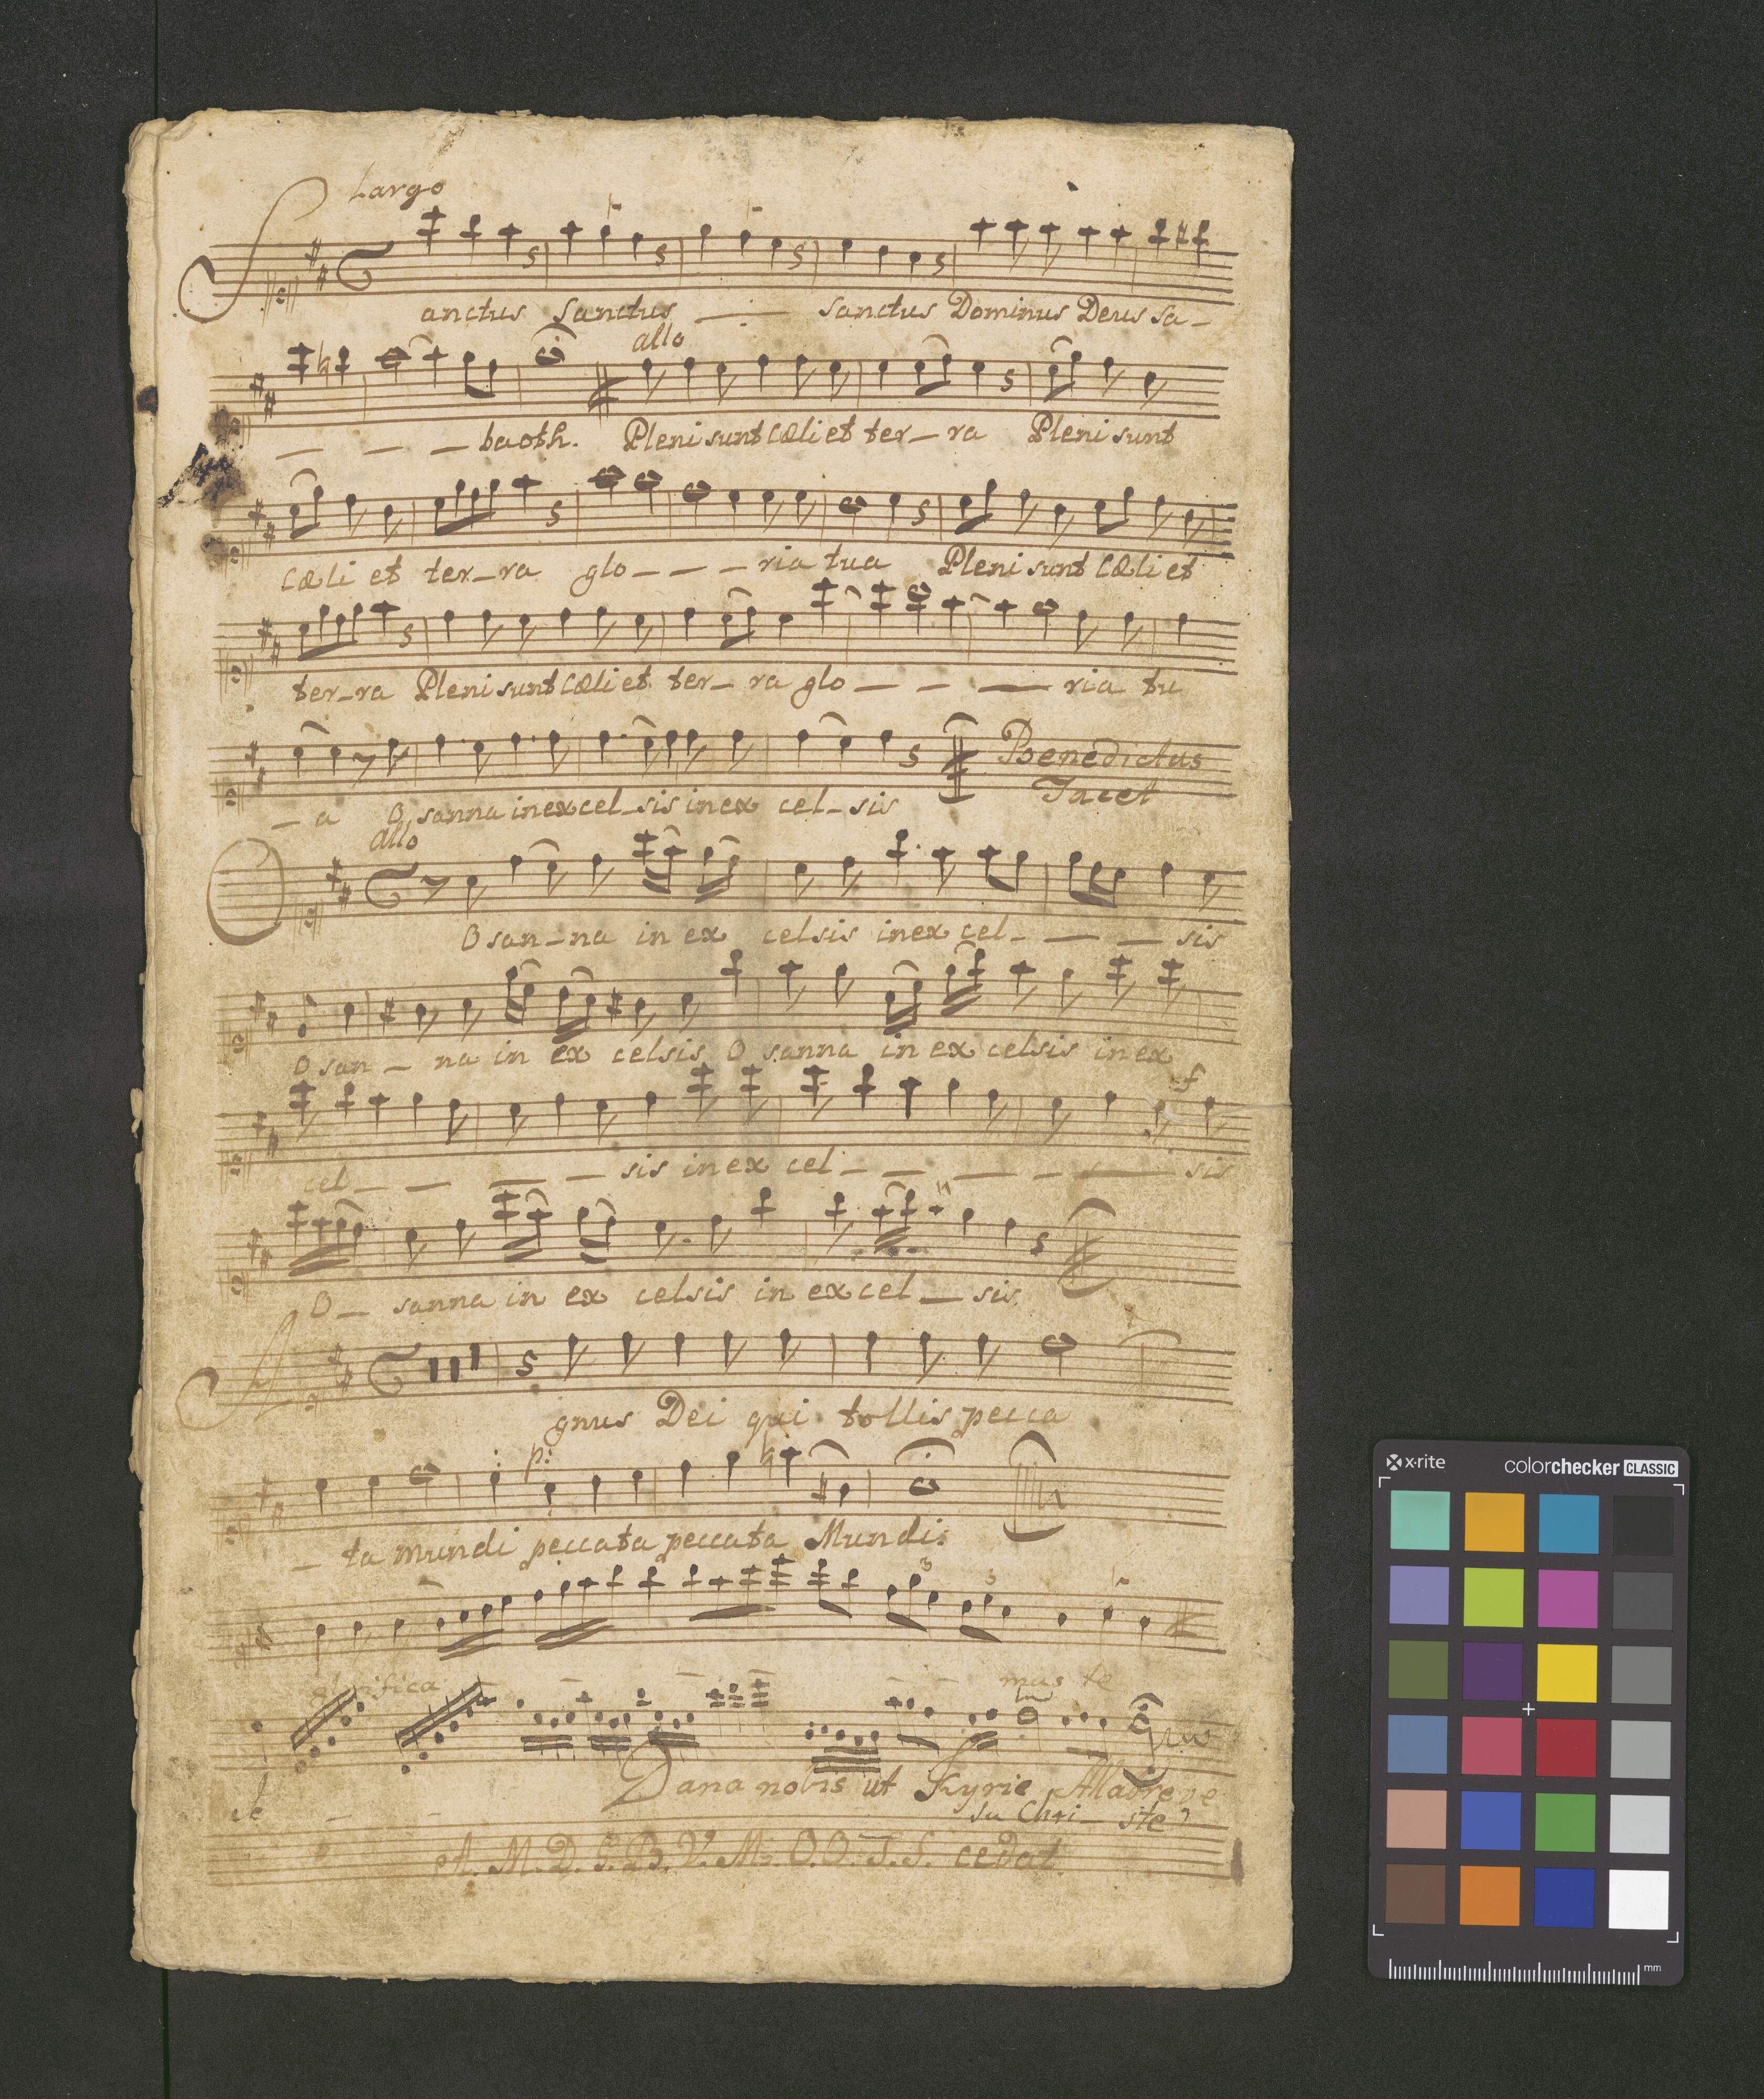 Largo
Sanctus Sanctus — sanctus Dominus Deus sa-
allo
— — — baoth. Pleni sunt Cæli et ter-ra Pleni sunt
Cæli et ter-ra glo - - - ria tua Pleni sunt Cæli et
ter-ra Pleni sunt Cæli et ter-ra glo — — — ria tu
Benedictus
Tacet
- a O sanna in excel-sis in ex cel-sis
allo
O san-na in ex celsis in ex cel- — — sis
O san — na in ex celsis O sanna in ex celsis in ex
f
cel — — — — sis in ex cel - — — - — sis
O — sanna in ex celsis in ex cel — sis.
Agnus Dei qui tollis pecca
p:
- ta mundi peccata peccata Mundi:
3 3
glorifica — — — — — mus te
Dana nobis ut Kyrie
su Chri - ste
A. M. D. G. B. V. M. O. O. S. S. cedat.
x-rite colorchecker CLASSIC
mm